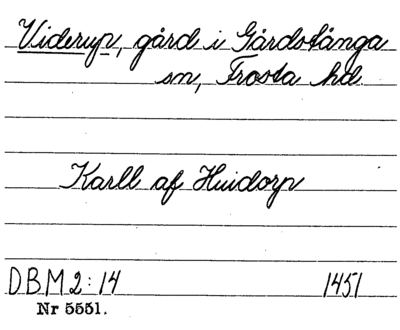 Viderup, gård i Gårdstånga
sn, Frosta hd.
Karll af Huidorp
DBM 2:14 1451
Nr 5551.